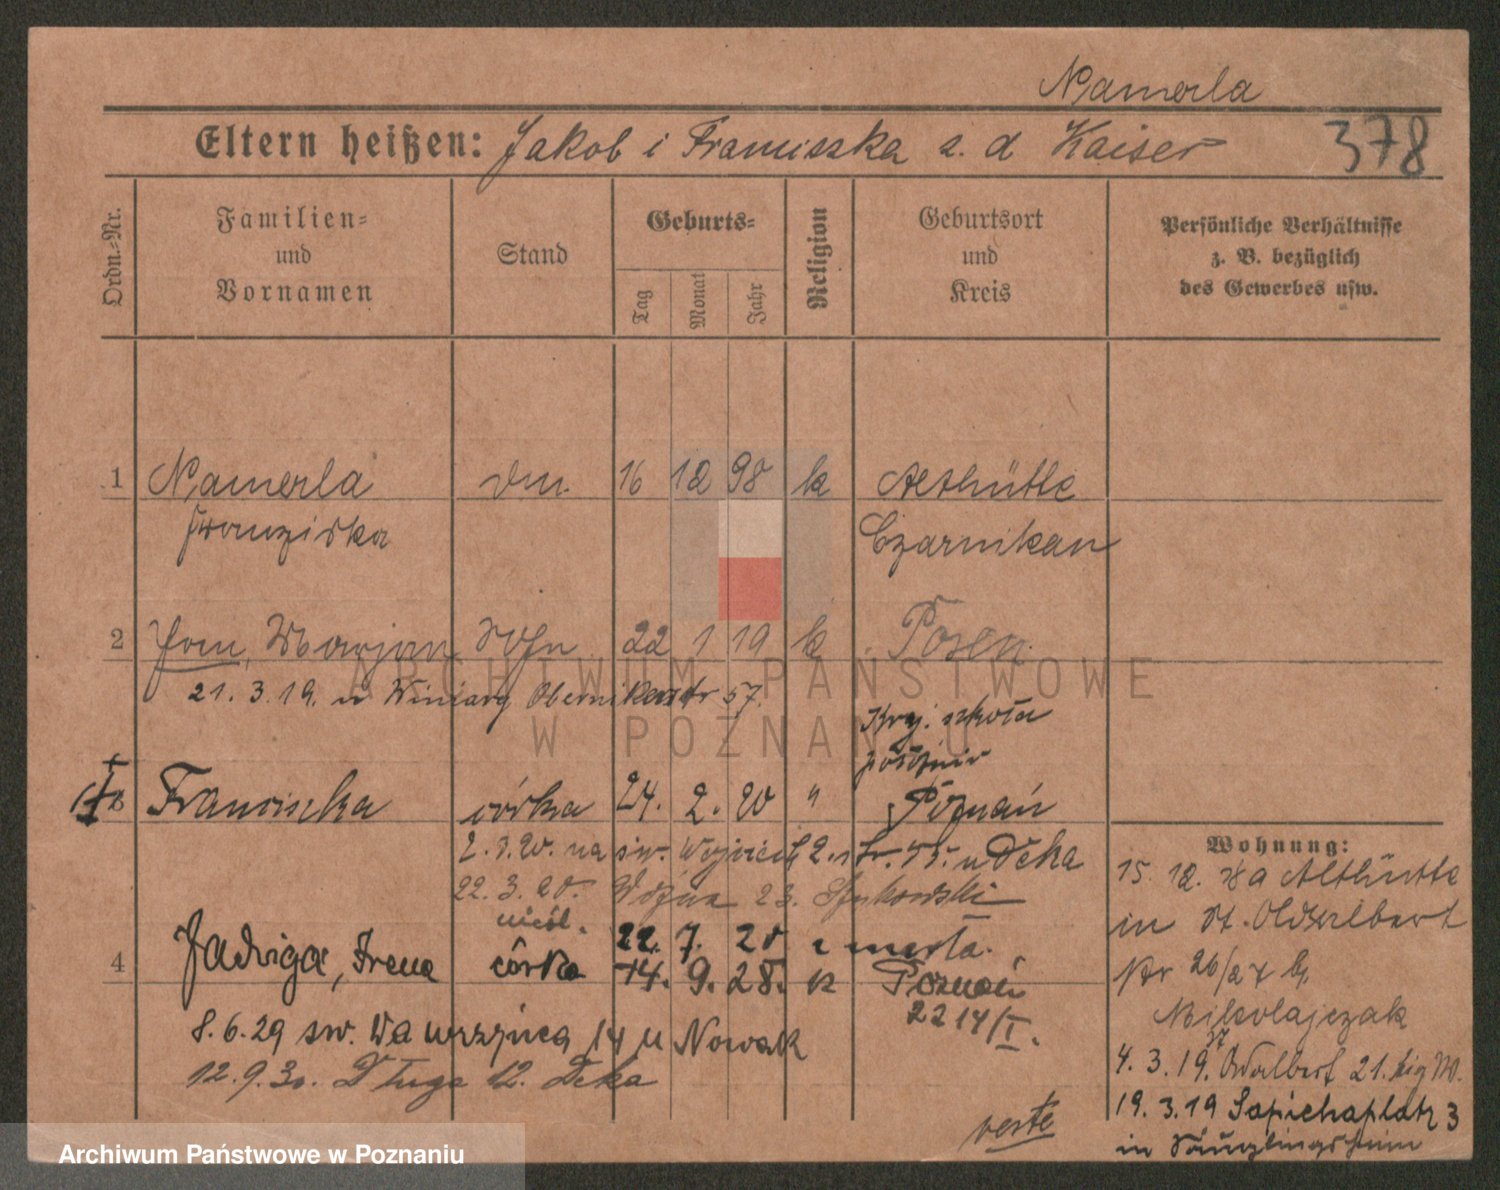 Namerla
Eltern heißen: Jakob i Franciszka z. d Kaiser
378
Ordn.-Nr.
Familien- und Vornamen
Stand
Geburts-
Tag
Monat
Jahr
Religion
Geburtsort und Kreis
Persönliche Verhältnisse z. B. bezüglich des Gewerbes usw.
1 Namerla 16 12 98 k Althütte
Franziska Czarnikau
2 Marjan Sohn 22 1 19 k Posen
21. 3. 19. n Winiary Obernikerstr 57.
Kraj. szkoła
położnic
Franciszka córka 24. 2. 20 " Poznań
2. 3. 20. na św. Wojciech 2. 55. u Deka
22. 3. 20. Woźna 23.
nieśl. 22. 7. 20 zmarła.
4 Jadwiga, Irena córka 14. 9. 28. k Poznań
2214/I.
8. 6. 29 św. Wawrzyńca 14 u Nowak
12. 9. 30. Długa 12. Deka
verte
Wohnung:
15. 12. 18 a Althütte
in St. Adalbert
Nr 26/27 b.
Mikolajczak
4. 3. 19. St Adalbert 21.
19. 3. 19 Sapiehaplatz 3
in Säuglingsheim
ARCHIWUM PAŃSTWOWE
W POZNANIU
Archiwum Państwowe w Poznaniu